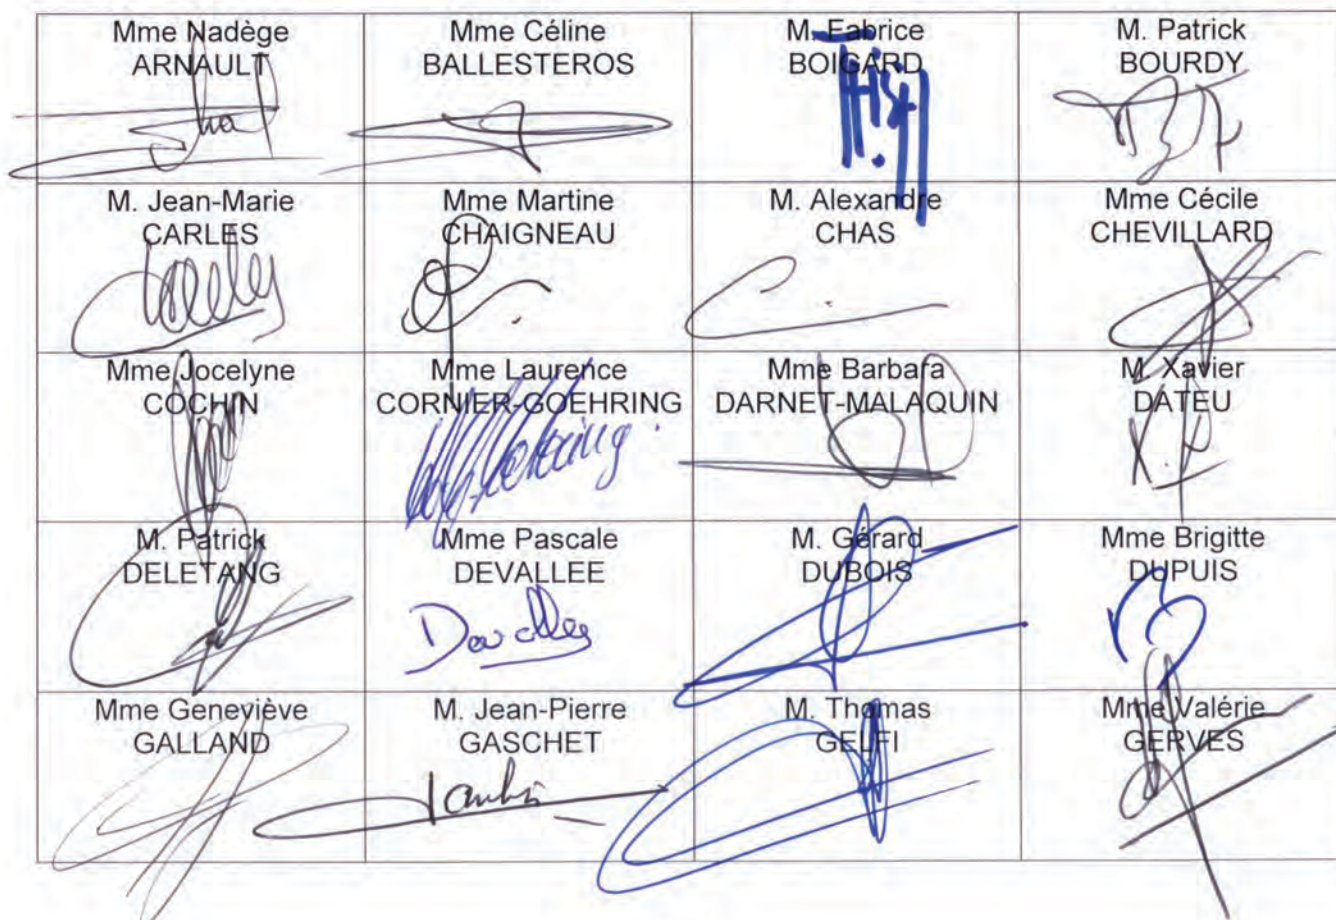 Mme Nadège
ARNAULT
Mme Céline
BALLESTEROS
M. Fabrice
BOIGARD
M. Patrick
BOURDY
M. Jean-Marie
CARLES
Mme Martine
CHAIGNEAU
M. Alexandre
CHAS
Mme Cécile
CHEVILLARD
Mme Jocelyne
COCHIN
Mme Laurence
CORNIER-GOEHRING
Mme Barbara
DARNET-MALAQUIN
M. Xavier
DATEU
M. Patrick
DELETANG
Mme Pascale
DEVALLEE
M. Gérard
DUBOIS
Mme Brigitte
DUPUIS
Mme Geneviève
GALLAND
M. Jean-Pierre
GASCHET
M. Thomas
GELFI
Mme Valérie
GERVES